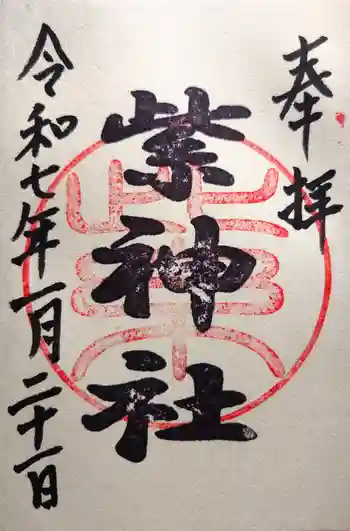 奉拝
紫神社
令和七年一月二十一日